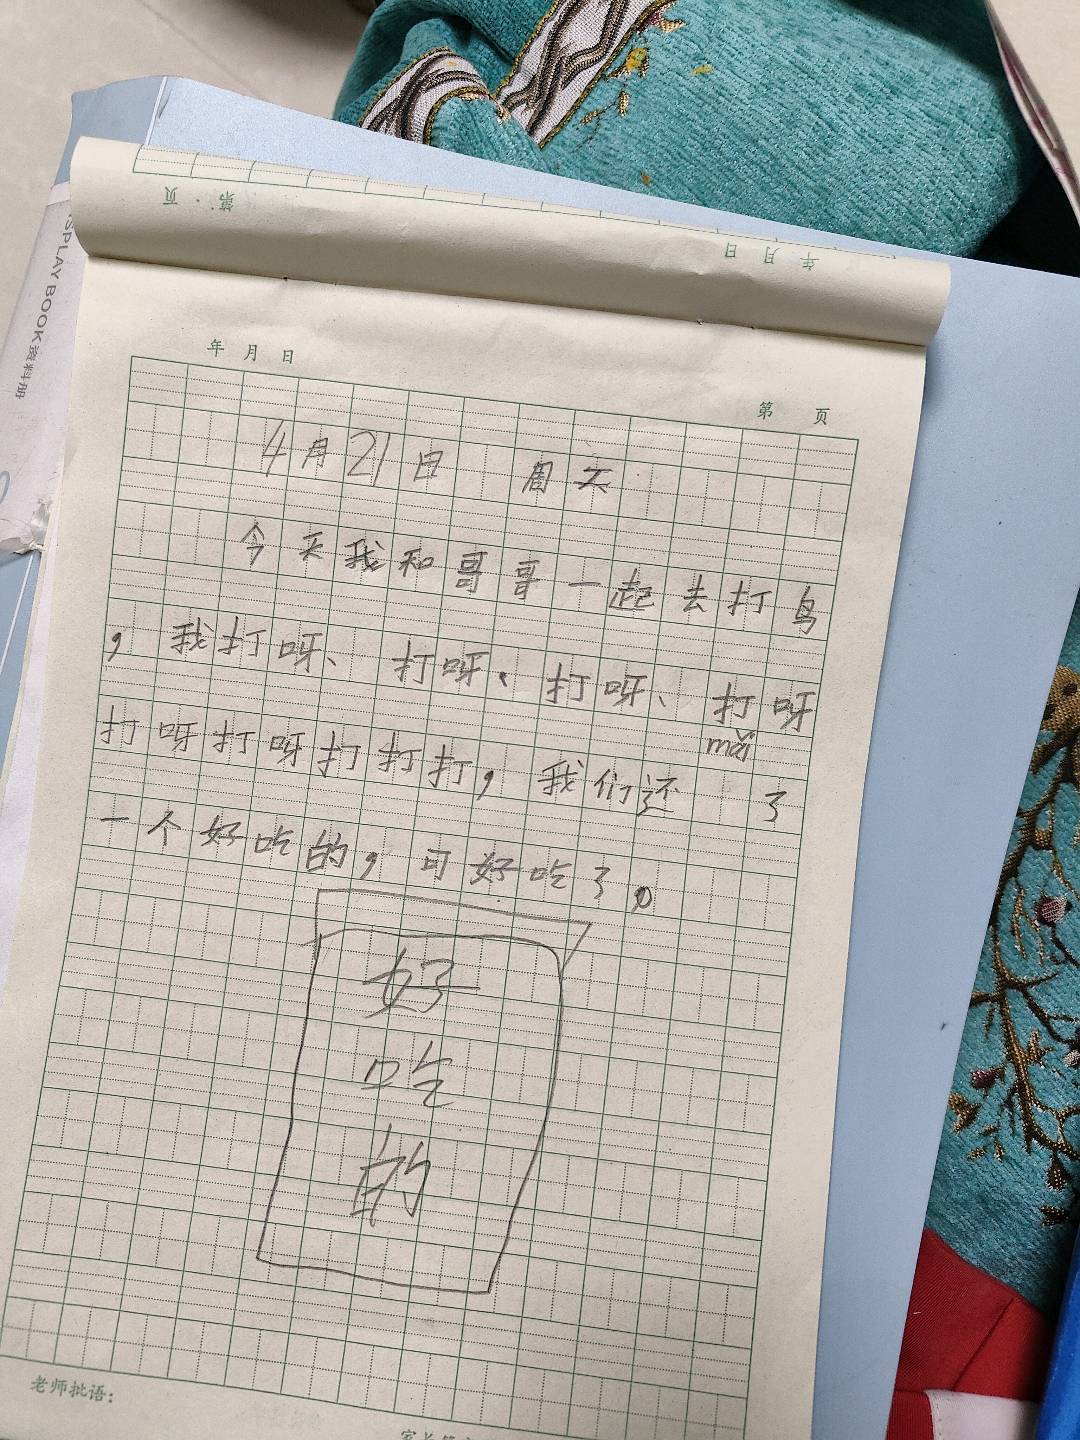 第 页
年 月 日
DISPLAY BOOK 资料册
年 月 日
第 页
4月21日 周天
今天我和哥哥一起去打鸟
，我打呀、打呀、打呀、打呀
打呀打呀打打打，我们还mǎi了
一个好吃的，可好吃了。
好
吃
的
老师批语：